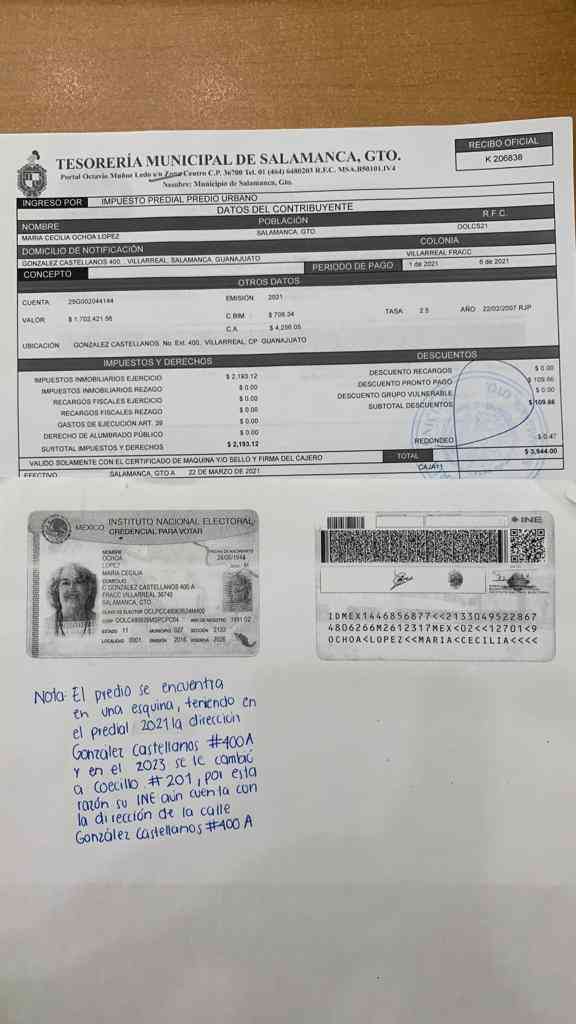 RECIBO OFICIAL
K 206838
TESORERÍA MUNICIPAL DE SALAMANCA, GTO.
Portal Octavio Muñoz Ledo s/n Zona Centro C.P. 36700 Tel. 01 (464) 6480203 R.F.C. MSA.850101.IV4
Nombre: Municipio de Salamanca, Gto.
INGRESO POR IMPUESTO PREDIAL PREDIO URBANO
DATOS DEL CONTRIBUYENTE
NOMBRE POBLACIÓN R.F.C.
MARIA CECILIA OCHOA LOPEZ SALAMANCA, GTO. OOLC521
DOMICILIO DE NOTIFICACIÓN COLONIA
GONZALEZ CASTELLANOS 400 . VILLARREAL, SALAMANCA, GUANAJUATO VILLARREAL FRACC
CONCEPTO PERIODO DE PAGO 1 de 2021 6 de 2021
OTROS DATOS
CUENTA: EMISIÓN 2021
VALOR $ 1,702,421.56 C.BIM : $ 709.34 TASA 2.5 AÑO 22/02/2007 RJP
C.A. $ 4,256.05
UBICACIÓN GONZALEZ CASTELLANOS. No. Ext. 400, VILLARREAL, CP GUANAJUATO
IMPUESTOS Y DERECHOS DESCUENTOS
IMPUESTOS INMOBILIARIOS EJERCICIO $ 2,193.12 DESCUENTO RECARGOS $ 0.00
IMPUESTOS INMOBILIARIOS REZAGO $ 0.00 DESCUENTO PRONTO PAGO $ 109.66
RECARGOS FISCALES EJERCICIO $ 0.00 DESCUENTO GRUPO VULNERABLE $ 0.00
RECARGOS FISCALES REZAGO $ 0.00 SUBTOTAL DESCUENTOS $ 109.66
GASTOS DE EJECUCION ART. 39 $ 0.00
DERECHO DE ALUMBRADO PÚBLICO $ 0.00 REDONDEO $ 0.47
SUBTOTAL IMPUESTOS Y DERECHOS $ 2,193.12
VALIDO SOLAMENTE CON EL CERTIFICADO DE MAQUINA Y/O SELLO Y FIRMA DEL CAJERO TOTAL $ 3,944.00
EFECTIVO SALAMANCA, GTO A 22 DE MARZO DE 2021 CAJA11
MÉXICO INSTITUTO NACIONAL ELECTORAL
CREDENCIAL PARA VOTAR
NOMBRE FECHA DE NACIMIENTO
OCHOA
LOPEZ
MARIA CECILIA
DOMICILIO
C GONZALEZ CASTELLANOS 400 A
FRACC VILLARREAL 36740
SALAMANCA, GTO.
CLAVE DE ELECTOR
CURP AÑO DE REGISTRO 1991 02
ESTADO 11 MUNICIPIO 027 SECCIÓN
LOCALIDAD 0001 EMISIÓN 2016 VIGENCIA 2026
INE
IDMEX1446856877<<2133049522867
4806266M2612317MEX<02<<12701<9
OCHOA<LOPEZ<<MARIA<CECILIA<<<<
Nota: El predio se encuentra
en una esquina, teniendo en
el predial 2021 la dirección
Gonzalez Castellanos #400A
y en el 2023 se le cambió
a Coecillo #201, por esta
razón su INE aún cuenta con
la dirección de la calle
González Castellanos #400 A